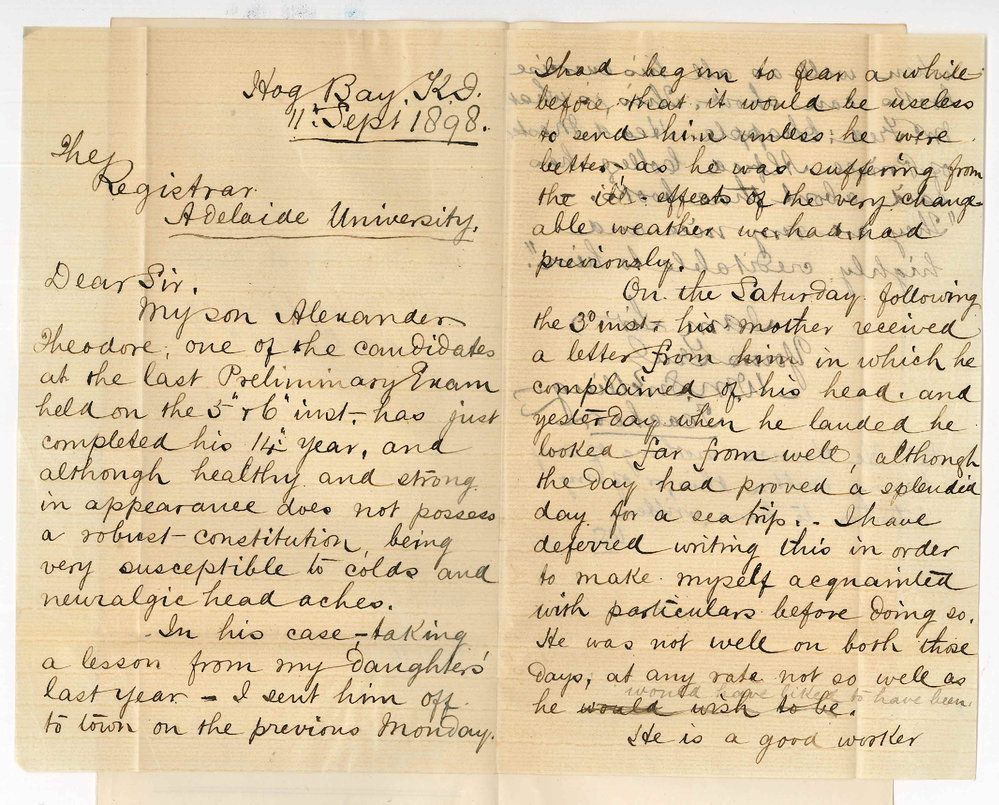 Hog Bay, K.I.
11th Sept 1898.
The
Registrar
Adelaide University.
Dear Sir,
My son Alexander
Theodore, one of the candidates
at the last Preliminary Exam
held on the 5" & 6" inst - has just
completed his 14" year, and
although healthy and strong
in appearance does not possess
a robust constitution, being
very susceptible to colds and
neuralgic head aches.
In his case - taking
a lesson from my daughters'
last year - I sent him off
to town on the previous Monday.
I had begun to fear a while
before, that it would be useless
to send him unless he were
better - as he was suffering from
the ill effects of the very change-
able weather we had had
previously.
On the Saturday following
the 3d inst - his mother received
a letter from him in which he
complained of his head. and
yesterday when he landed he
looked far from well, although
the day had proved a splendid
day for a sea trip. - I have
deferred writing this in order
to make myself acquainted
with particulars before doing so.
He was not well on both those
days, at any rate not so well as
would have liked to have been
he would wish to be.
He is a good worker